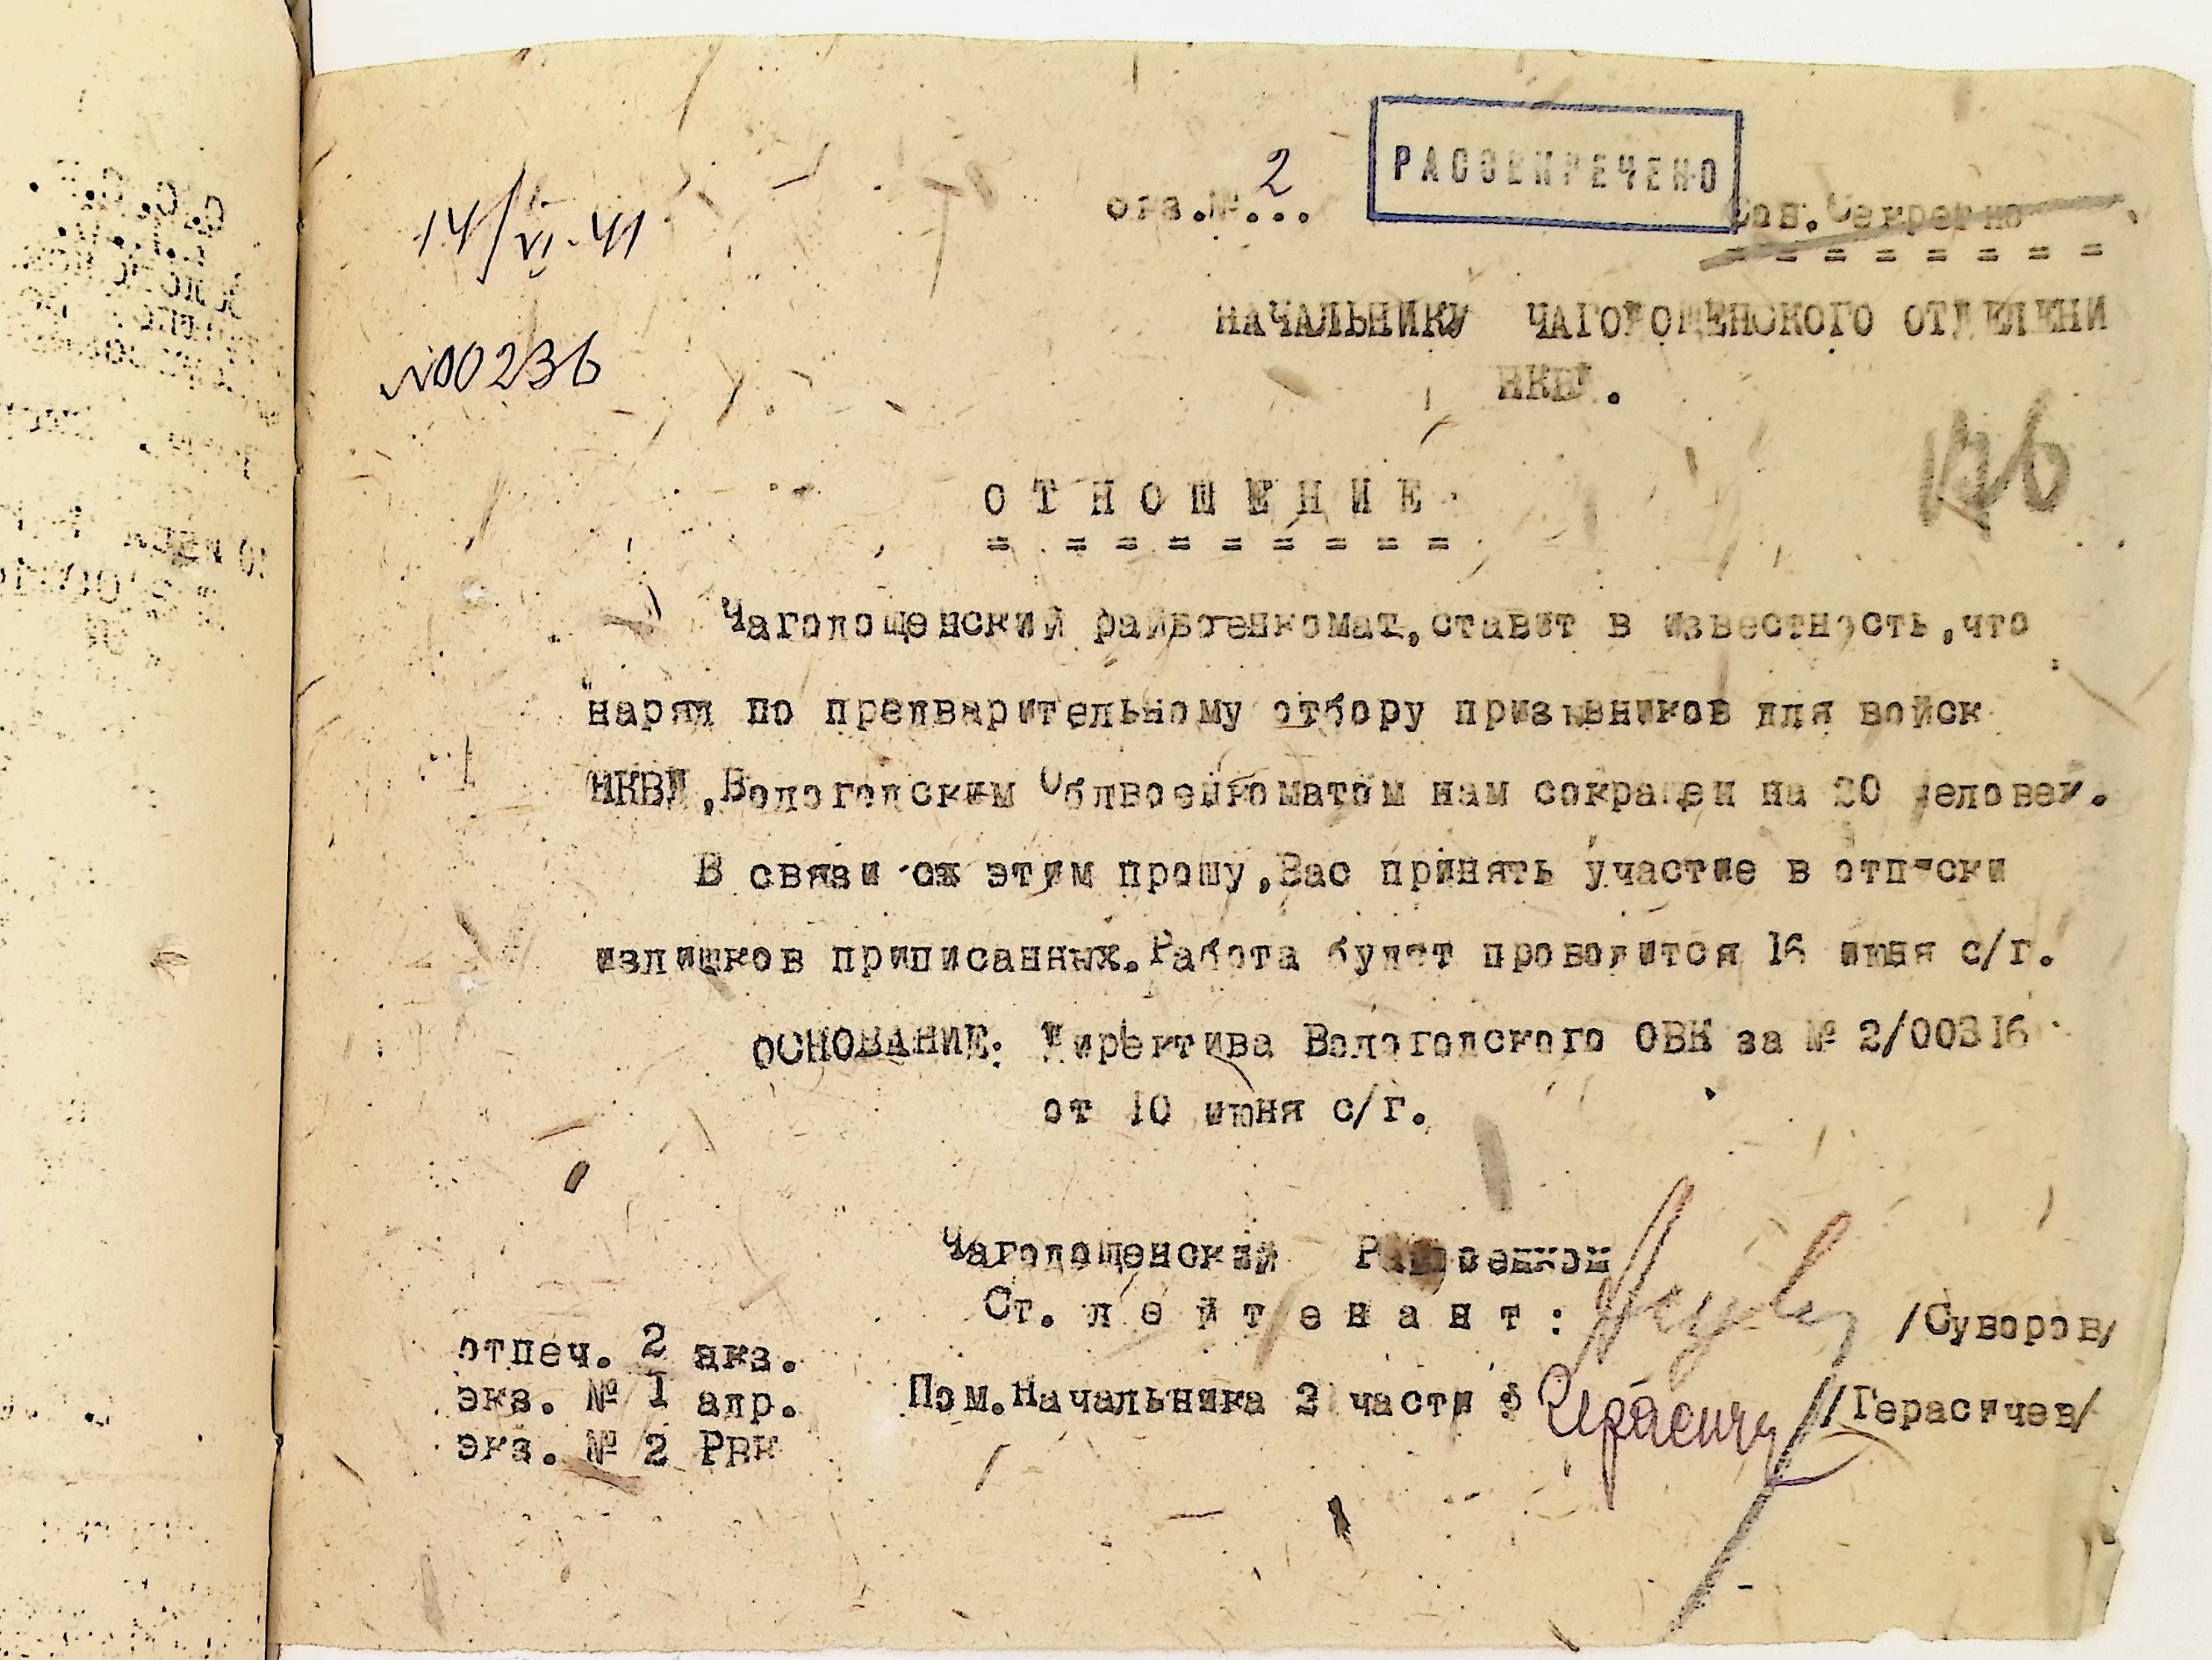 14/VI-41
экз.№ 2...
РАССЕКРЕЧЕНО
Сов.Секретно
№00236
НАЧАЛЬНИКУ ЧАГОДОЩЕНСКОГО ОТДЕЛЕНИ
НКВД.
ОТНОШЕНИЕ
Чагодощенский райвоенкомат,ставит в известность,что
наряд по предварительному отбору призывников для войск
НКВД,Вологодским Облвоенкоматом нам сокращен на 20 человек.
В связи сж этим прошу,Вас принять участие в отписки
излишков приписанных.Работа будет проводится 16 июня с/г.
ОСНОВАНИЕ: Директива Вологодского ОВК за № 2/00316
от 10 июня с/г.
Чагодощенский Райвоенком
Ст. лейтенант: /Суворов/
отпеч. 2 экз.
экз. № I адр.
Пом.Начальника 3 части Герасичев /Герасичев/
экз. № 2 РВК